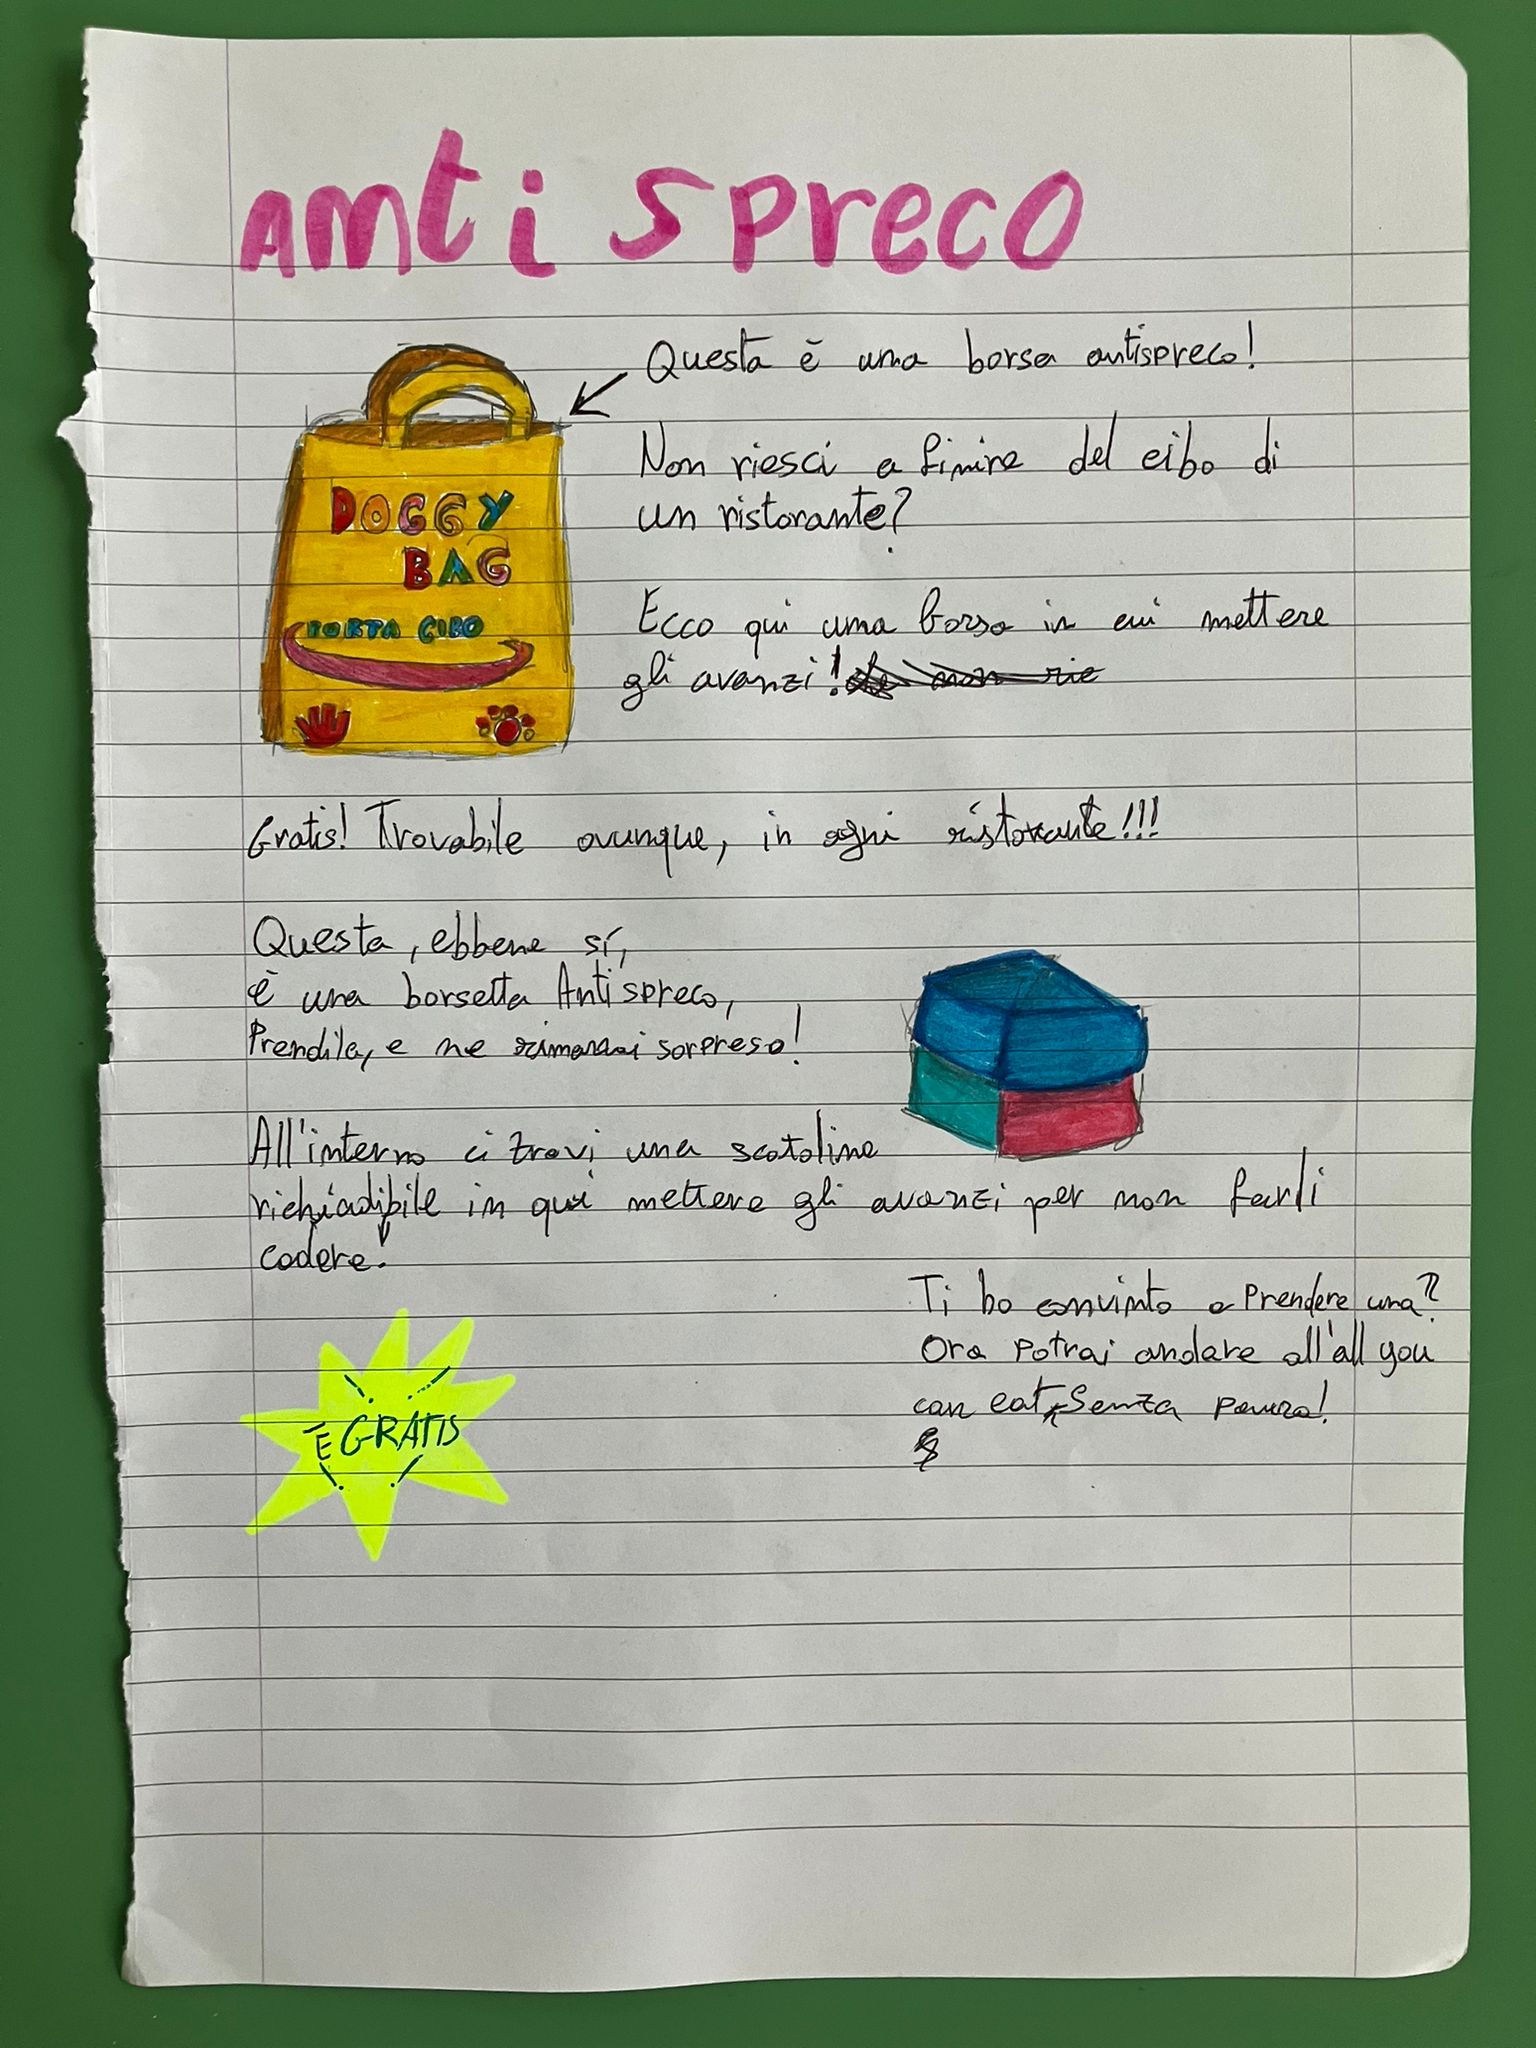 Anti spreco
Questa è una borsa antispreco!
DOGGY
BAG
PORTA CIBO
Non riesci a finire del cibo di
un ristorante?
Ecco qui una borsa in cui mettere
gli avanzi!
Gratis! Trovabile ovunque, in ogni ristorante!!!
Questa, ebbene sí,
è una borsetta Antispreco,
Prendila, e ne rimarrai sorpreso!
All'interno ci trovi una scatolina
richiudibile in qui mettere gli avanzi per non farli
cadere!
Ti ho convinto a prendere una?
Ora potrai andare all'all you
can eat, senza paura!
È GRATIS